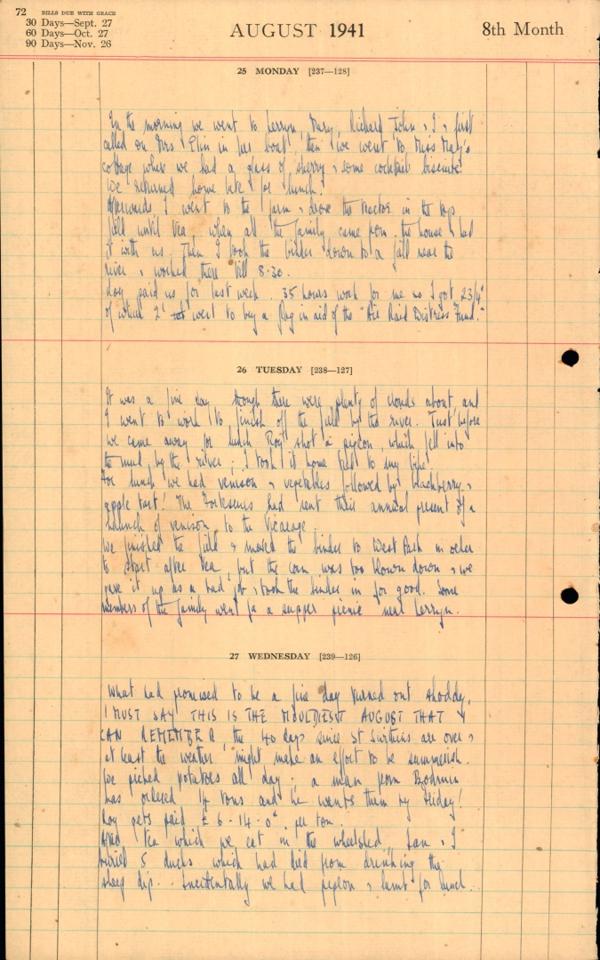 72 BILLS DUE WITH GRACE
30 Days—Sept. 27
60 Days—Oct. 27
90 Days—Nov. 26
AUGUST 1941
8th Month
25 MONDAY [237—128]
In the morning we went to Lerryn, Mary, Richard, John & I, & first
called on Mrs in her boat, then we went to Miss May's
cottage where we had a glass of sherry & some cocktail biscuits.
We returned home late for lunch!
Afterwards I went to the farm & drove the tractor in the top
field until tea, when all the family came from the house & had
it with us. Then I took the binder down to a field near the
river & worked there till 8.30.
Roy paid us for last week. 35 hours work for me so I got 23/4d
of which 2' went to buy a flag in aid of the "Air Raid Distress Fund."
26 TUESDAY [238—127]
It was a fine day though there were plenty of clouds about, and
I went to work to finish off the field by the river. Just before
we came away for lunch Roy shot a pigeon, which fell into
the mud by the river; I took it home tied to my bike!
For lunch we had venison & vegetables followed by blackberry &
apple tart! The Fortescues had sent their annual present of a
haunch of venison to the Vicarage.
We finished the field & moved the binder to West Park in order
to start after tea, but the corn was too blown down & we
gave it up as a bad job & took the binder in for good. Some
members of the family went for a supper picnic near Lerryn.
27 WEDNESDAY [239—126]
What had promised to be a fine day turned out shoddy.
I MUST SAY THIS IS THE MOULDIEST AUGUST THAT I
CAN REMEMBER, the 40 days since St Swithins are over &
at least the weather might make an effort to be summerish.
We picked potatoes all day; a man from Bodmin
has ordered 14 tons and he wants them by Friday!
Roy gets paid £6-14-0d per ton.
After tea which we eat in the wheelshed, & I
buried 5 ducks which had died from drinking the
sheep dip. Incidentally we had pigeon & lamb for lunch.